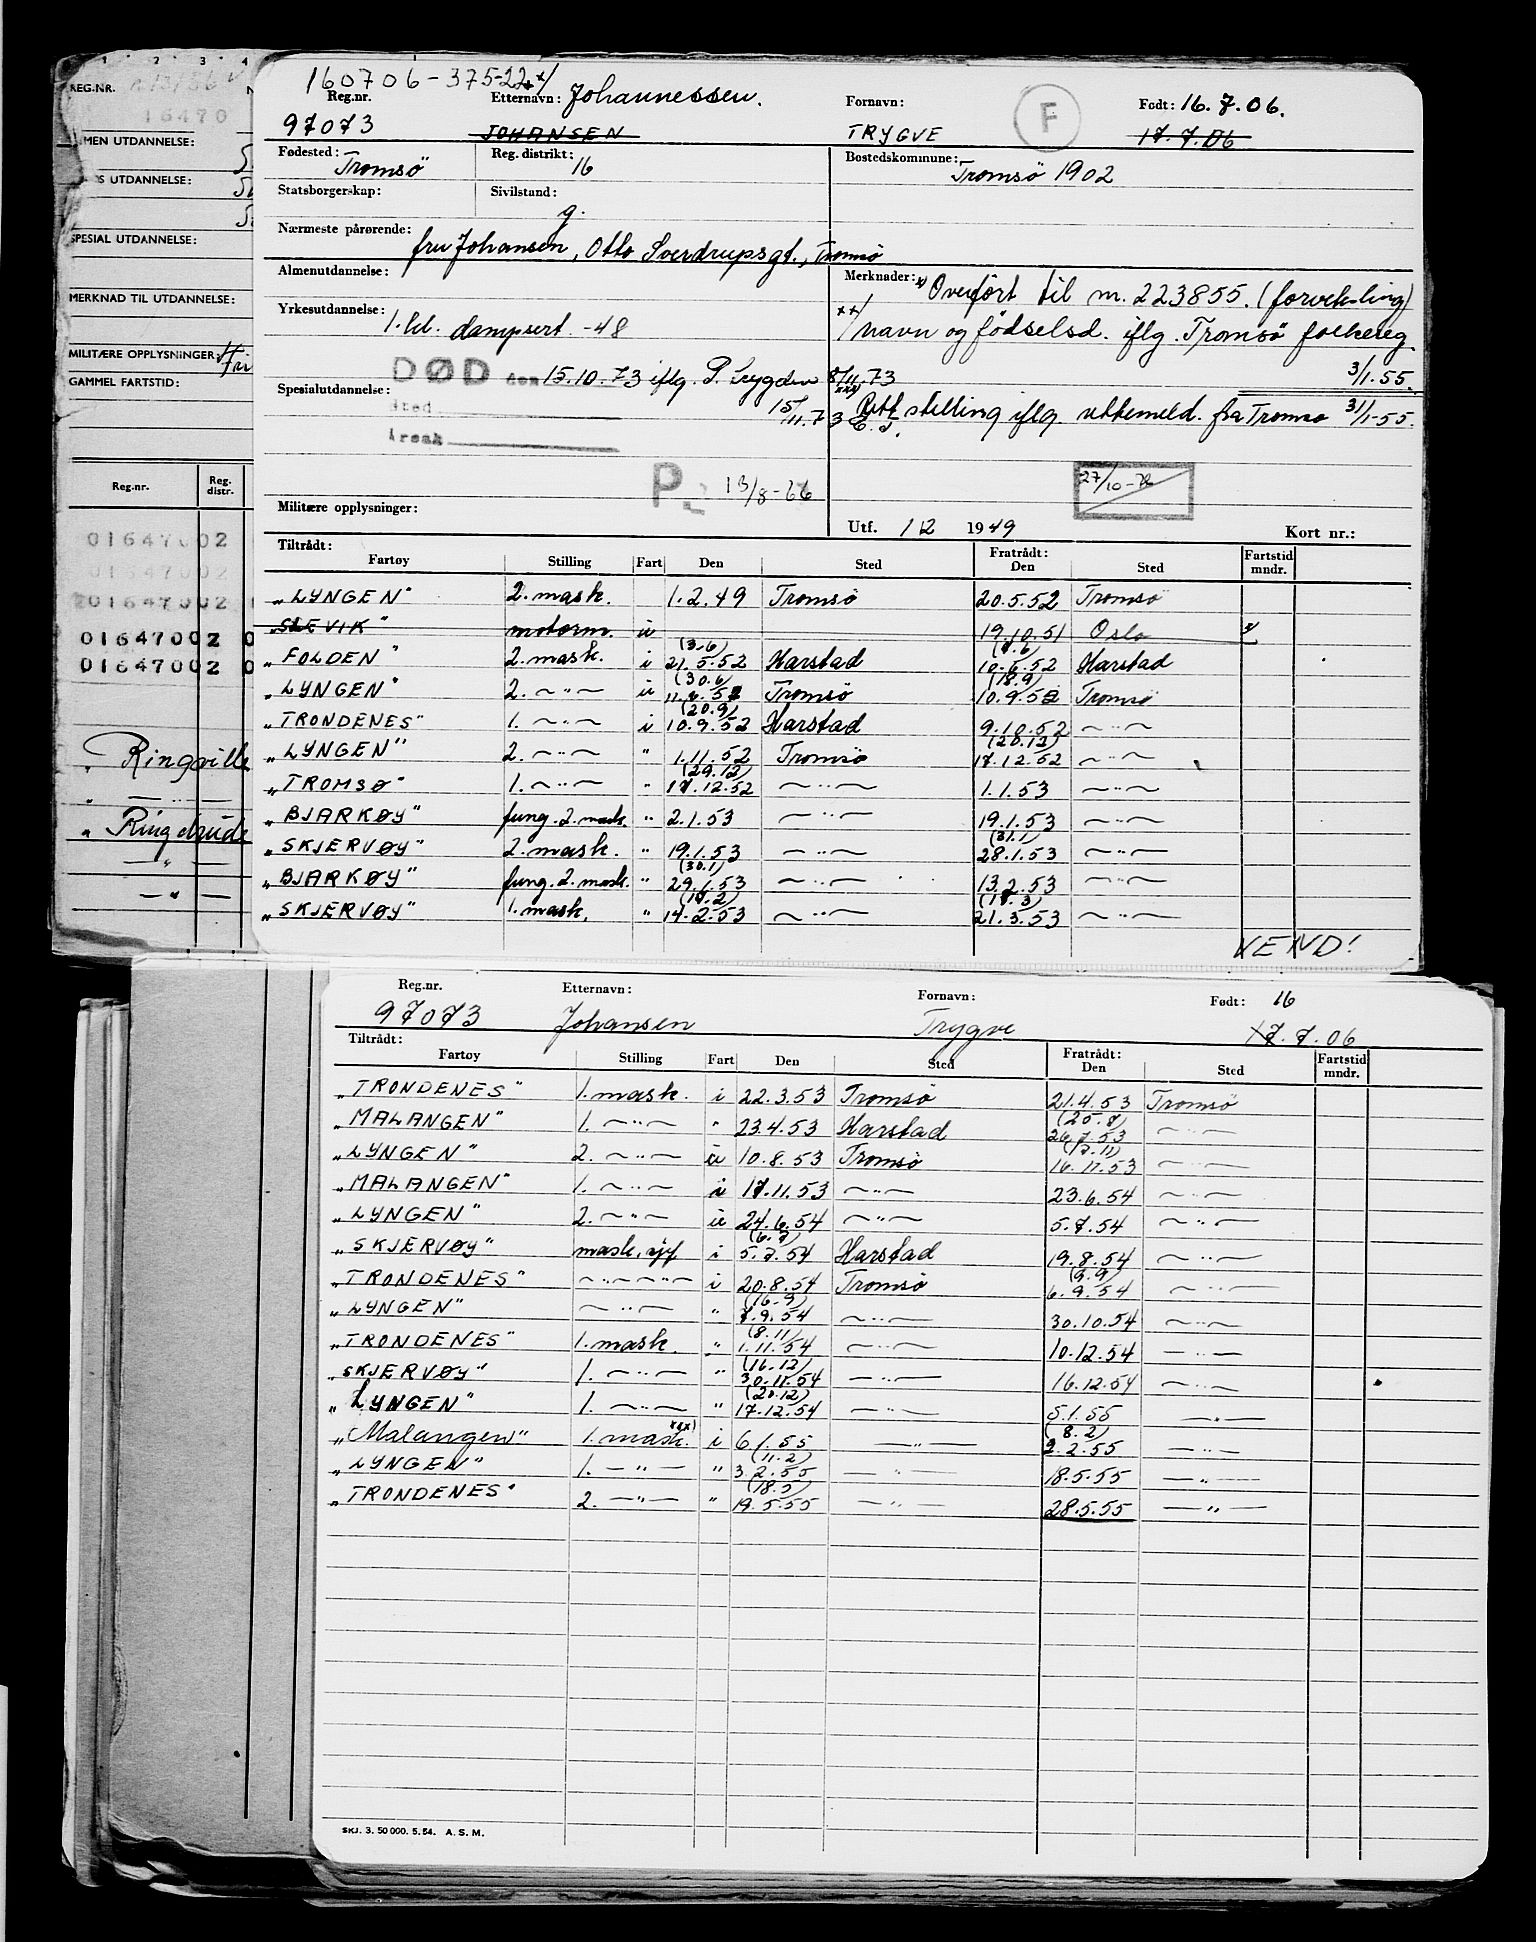 1 2 3 4
REG.NR.
16470
UTDANNELSE:
UTDANNELSE:
SPESIAL UTDANNELSE:
MERKNAD TIL UTDANNELSE:
MILITÆRE OPPLYSNINGER:
GAMMEL FARTSTID:
Reg.nr. Reg. distr.
01647002
01647002
01647002
01647002 0
01647002 0
Ringville
" — " —
" Ringdrude
— " —
— " —
160706-375-22 xx/
Reg.nr. Etternavn: Johannessen. Fornavn: F Født: 16.7.06.
97073 JOHANSEN TRYGVE 17.7.06
Fødested: Tromsö Reg. distrikt: 16 Bostedskommune: Tromsö 1902
Statsborgerskap: Sivilstand: g.
Nærmeste pårørende: fru Johansen, Otto Sverdrupsgt., Tromsö
Almenutdannelse: Merknader: x) Overfört til nr. 223855. (forveksling)
Yrkesutdannelse: 1.kl. dampsert. -48 xx/ navn og födselsd. iflg. Tromsö folkereg. 3/1.55.
DØD den 15.10.73 iflg. 8/11.73
Spesialutdannelse: xxx) Rett stilling iflg. uttemeld. fra Tromsø 31/1-55.
Sted 15/11.73
Årsak
P 13/8-66 27/10-72
Militære opplysninger: Utf. 1/2 1949 Kort nr.:
Tiltrådt: Fratrådt: Fartstid
Fartøy Stilling Fart Den Sted Den Sted mndr.
„LYNGEN" 2. mask. 1.2.49 Tromsö 20.5.52 Tromsö
„SLEVIK" motorm. u 19.10.51 Oslo x)
„FOLDEN" 2. mask. i (3.6) 21.5.52 Harstad (7.6) 10.6.52 Harstad
„LYNGEN" 2. —"— u (30.6) 11.6.52 Tromsö (18.9) 10.9.52 Tromsö
„TRONDENES" 1. —"— i (20.9) 10.9.52 Harstad 9.10.52 —"—
„LYNGEN" 2. —"— " 1.11.52 Tromsö (28.12) 17.12.52 —"—
„TROMSØ" 1. —"— " (29.12) 17.12.52 —"— 1.1.53 —"—
„BJARKØY" fung. 2. mask. " 2.1.53 —"— 19.1.53 —"—
„SKJERVØY" 2. mask. " 19.1.53 —"— (31.1) 28.1.53 —"—
„BJARKØY" fung. 2. mask. " (30.1) 29.1.53 —"— 13.2.53 —"—
„SKJERVØY" 1. mask. " (17.2) 14.2.53 —"— (17.3) 21.3.53 —"—
VEND!
Reg.nr. Etternavn: Fornavn: Født: 16
97073 Johansen Trygve 17.7.06
Tiltrådt: Fratrådt: Fartstid
Fartøy Stilling Fart Den Sted Den Sted mndr.
„TRONDENES" 1. mask. i 22.3.53 Tromsö 21.4.53 Tromsö
„MALANGEN" 1. —"— " 23.4.53 Harstad (25.7) 26.7.53 —"—
„LYNGEN" 2. —"— u 10.8.53 Tromsö (17.11) 16.11.53 —"—
„MALANGEN" 1. —"— i 17.11.53 —"— 23.6.54 —"—
„LYNGEN" 2. —"— u 24.6.54 —"— 5.7.54 —"—
„SKJERVØY" mask.sjef i (6.7) 5.7.54 Harstad 19.8.54 —"—
„TRONDENES" —"—"— i 20.8.54 Tromsö (9.9) 6.9.54 —"—
„LYNGEN" —"— " (16.9) 7.9.54 —"— 30.10.54 —"—
„TRONDENES" 1. mask. " (8.11) 1.11.54 —"— 10.12.54 —"—
„SKJERVØY" 1. —"— " (16.12) 30.11.54 —"— 16.12.54 —"—
„LYNGEN" 1. —"— " (20.12) 17.12.54 —"— 5.1.55 —"—
„Malangen" 1. mask. xxx) i 6.1.55 —"— (8.2) 2.2.55 —"—
„LYNGEN" 1. —"— " (11.2) 3.2.55 —"— 18.5.55 —"—
„TRONDENES" 2. —"— " (18.5) 19.5.55 —"— 28.5.55 —"—
SKJ. 3. 50 000. 5. 54. A. S. M.